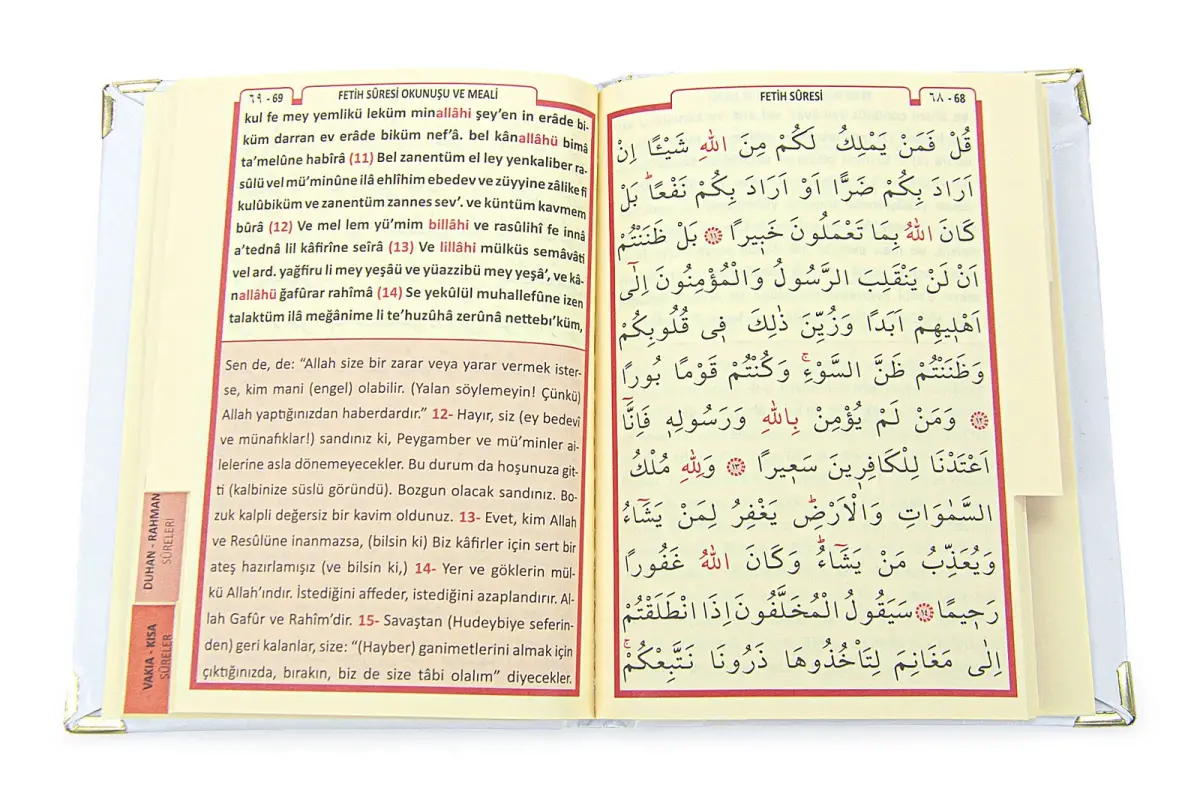 ٦٩ - 69
FETİH SÛRESİ OKUNUŞU VE MEALİ
kul fe mey yemlikü leküm minallâhi şey'en in erâde bi-
küm darran ev erâde biküm nef'â. bel kânallâhü bimâ
ta'melûne habîrâ (11) Bel zanentüm el ley yenkaliber ra-
sûlü vel mü'minûne ilâ ehlîhim ebedev ve züyyine zâlike fi
kulûbiküm ve zanentüm zannes sev'. ve küntüm kavmem
bûrâ (12) Ve mel lem yü'mim billâhi ve rasûlihî fe innâ
a'tednâ lil kâfirîne seîrâ (13) Ve lillâhi mülküs semâvâti
vel ard. yağfiru li mey yeşâü ve yüazzibü mey yeşâ', ve kâ-
nallâhü ğafûrar rahîmâ (14) Se yekûlül muhallefûne izen
talaktüm ilâ meğânime li te'huzûhâ zerûnâ nettebı'küm,
Sen de, de: "Allah size bir zarar veya yarar vermek ister-
se, kim mani (engel) olabilir. (Yalan söylemeyin! Çünkü)
Allah yaptığınızdan haberdardır." 12- Hayır, siz (ey bedevî
ve münafıklar!) sandınız ki, Peygamber ve mü'minler ai-
lelerine asla dönemeyecekler. Bu durum da hoşunuza git-
ti (kalbinize süslü göründü). Bozgun olacak sandınız. Bo-
zuk kalpli değersiz bir kavim oldunuz. 13- Evet, kim Allah
ve Resûlüne inanmazsa, (bilsin ki) Biz kâfirler için sert bir
ateş hazırlamışız (ve bilsin ki,) 14- Yer ve göklerin mül-
kü Allah'ındır. İstediğini affeder, istediğini azaplandırır. Al-
lah Gafûr ve Rahîm'dir. 15- Savaştan (Hudeybiye seferin-
den) geri kalanlar, size: "(Hayber) ganimetlerini almak için
çıktığınızda, bırakın, biz de size tâbi olalım" diyecekler.
DUHAN - RAHMAN
SÛRELERİ
VAKIA - KISA
SÛRELER
FETİH SÛRESİ
٦٨ - 68
قُلْ فَمَنْ يَمْلِكُ لَكُمْ مِنَ اللّٰهِ شَيْئًا اِنْ
اَرَادَ بِكُمْ ضَرًّا اَوْ اَرَادَ بِكُمْ نَفْعًاۜ بَلْ
كَانَ اللّٰهُ بِمَا تَعْمَلُونَ خَبٖيرًا ﴿١١﴾ بَلْ ظَنَنْتُمْ
اَنْ لَنْ يَنْقَلِبَ الرَّسُولُ وَالْمُؤْمِنُونَ اِلٰٓى
اَهْلٖيهِمْ اَبَدًا وَزُيِّنَ ذٰلِكَ فٖى قُلُوبِكُمْ
وَظَنَنْتُمْ ظَنَّ السَّوْءِۚ وَكُنْتُمْ قَوْمًا بُورًا
﴿١٢﴾ وَمَنْ لَمْ يُؤْمِنْ بِاللّٰهِ وَرَسُولِهٖ فَاِنَّٓا
اَعْتَدْنَا لِلْكَافِرٖينَ سَعٖيرًا ﴿١٣﴾ وَلِلّٰهِ مُلْكُ
السَّمٰوَاتِ وَالْاَرْضِۜ يَغْفِرُ لِمَنْ يَشَٓاءُ
وَيُعَذِّبُ مَنْ يَشَٓاءُۜ وَكَانَ اللّٰهُ غَفُورًا
رَحٖيمًا ﴿١٤﴾ سَيَقُولُ الْمُخَلَّفُونَ اِذَا انْطَلَقْتُمْ
اِلٰى مَغَانِمَ لِتَأْخُذُوهَا ذَرُونَا نَتَّبِعْكُمْۚ